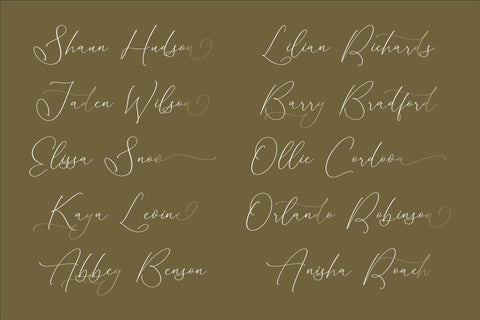 Shaun Hudson
Lilian Richards
Jaden Wilson
Barry Bradford
Elissa Snow
Ollie Cordova
Kaya Levine
Orlando Robinson
Abbey Benson
Anisha Roach